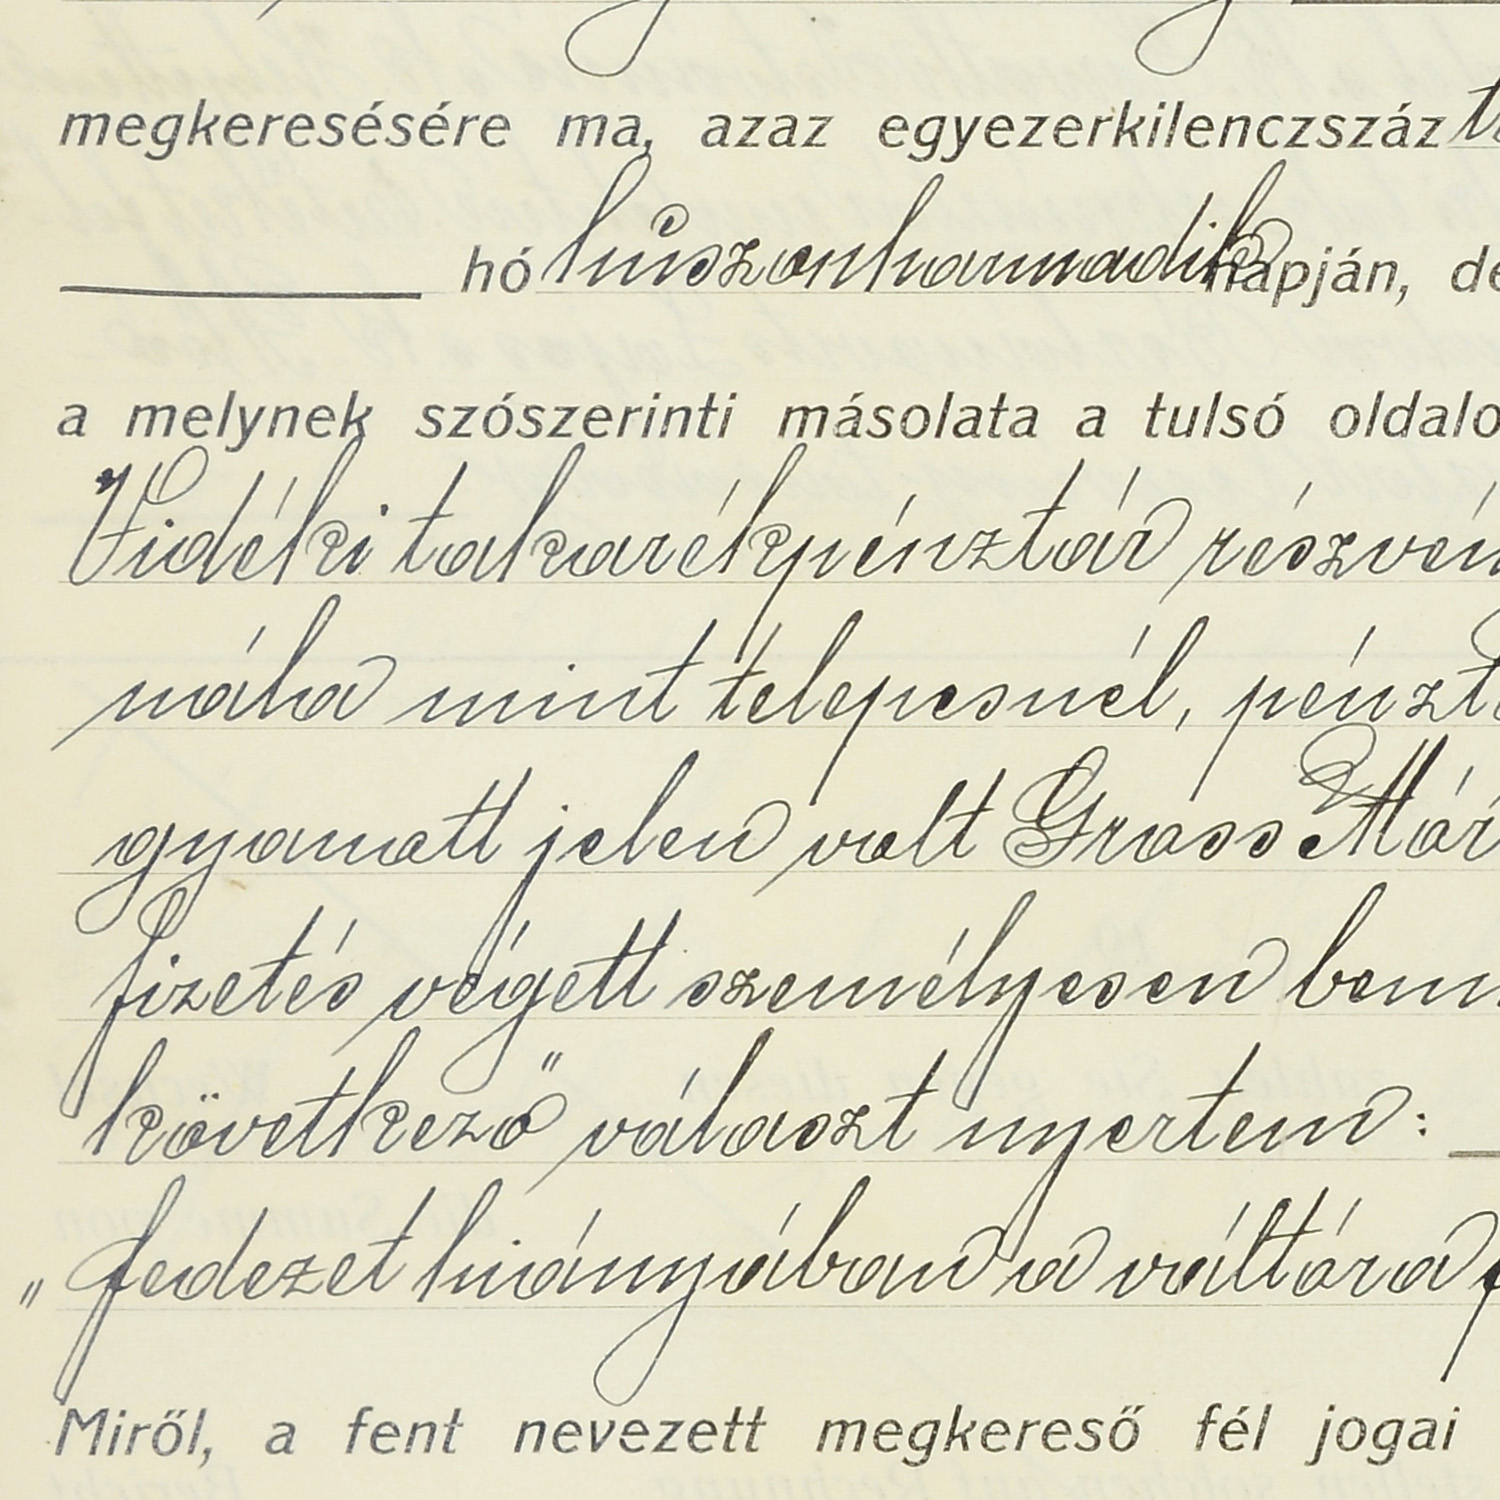 megkeresésére ma, azaz egyezerkilenczszáz
hó huszonharmadik napján, de
a melynek szószerinti másolata a tulsó oldalo
Vidéki takarékpénztár részvén
nála mint telepesnél, pénzt
gyanott jelen volt Gross Már
fizetés végett személyesen benn
következő választ nyertem:
„fedezet hiányában a váltóra f
Miről, a fent nevezett megkereső fél jogai